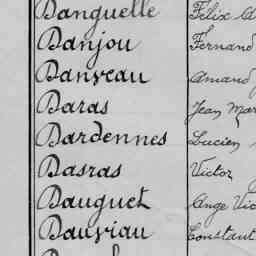 Danguelle Félix
Danjou Fernand
Danveau Amand
Daras Jean
Dardennes Lucien
Dasras Victor
Dauguet Ange
Dauviau Constant